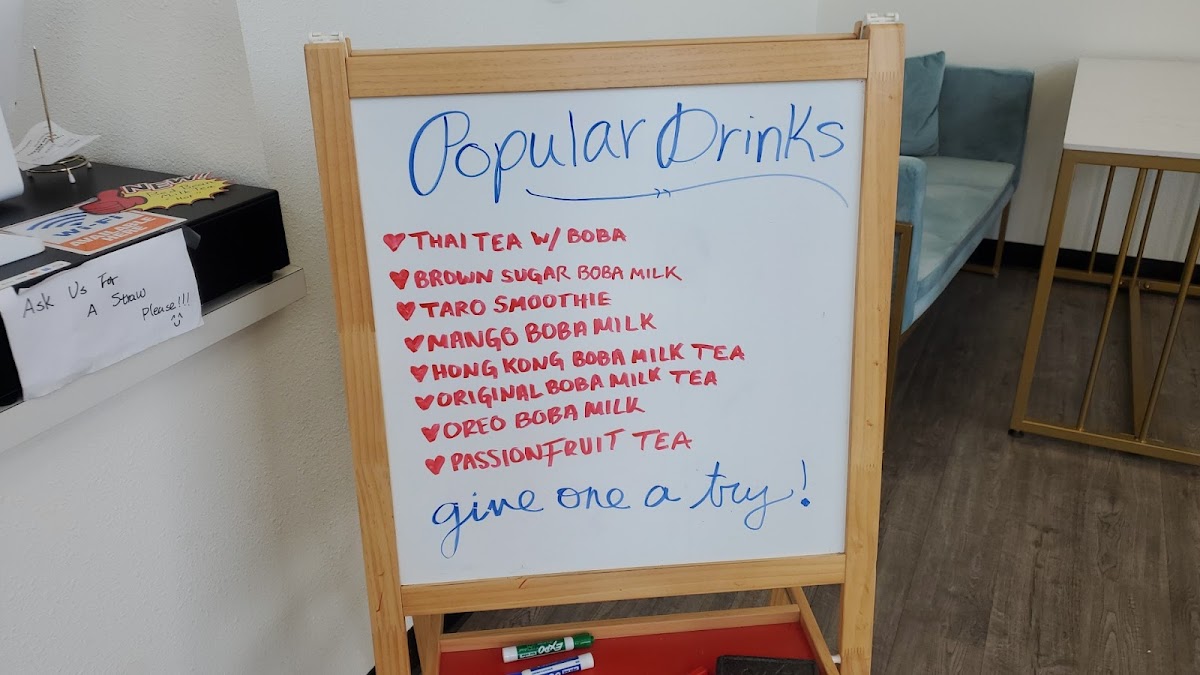 Popular Drinks
THAI TEA W/ BOBA
BROWN SUGAR BOBA MILK
TARO SMOOTHIE
MANGO BOBA MILK
HONG KONG BOBA MILK TEA
ORIGINAL BOBA MILK TEA
OREO BOBA MILK
PASSIONFRUIT TEA
give one a try!
NEW
Wi-Fi
AVAILABLE
Ask Us For
A Straw
Please!!!
EXPO